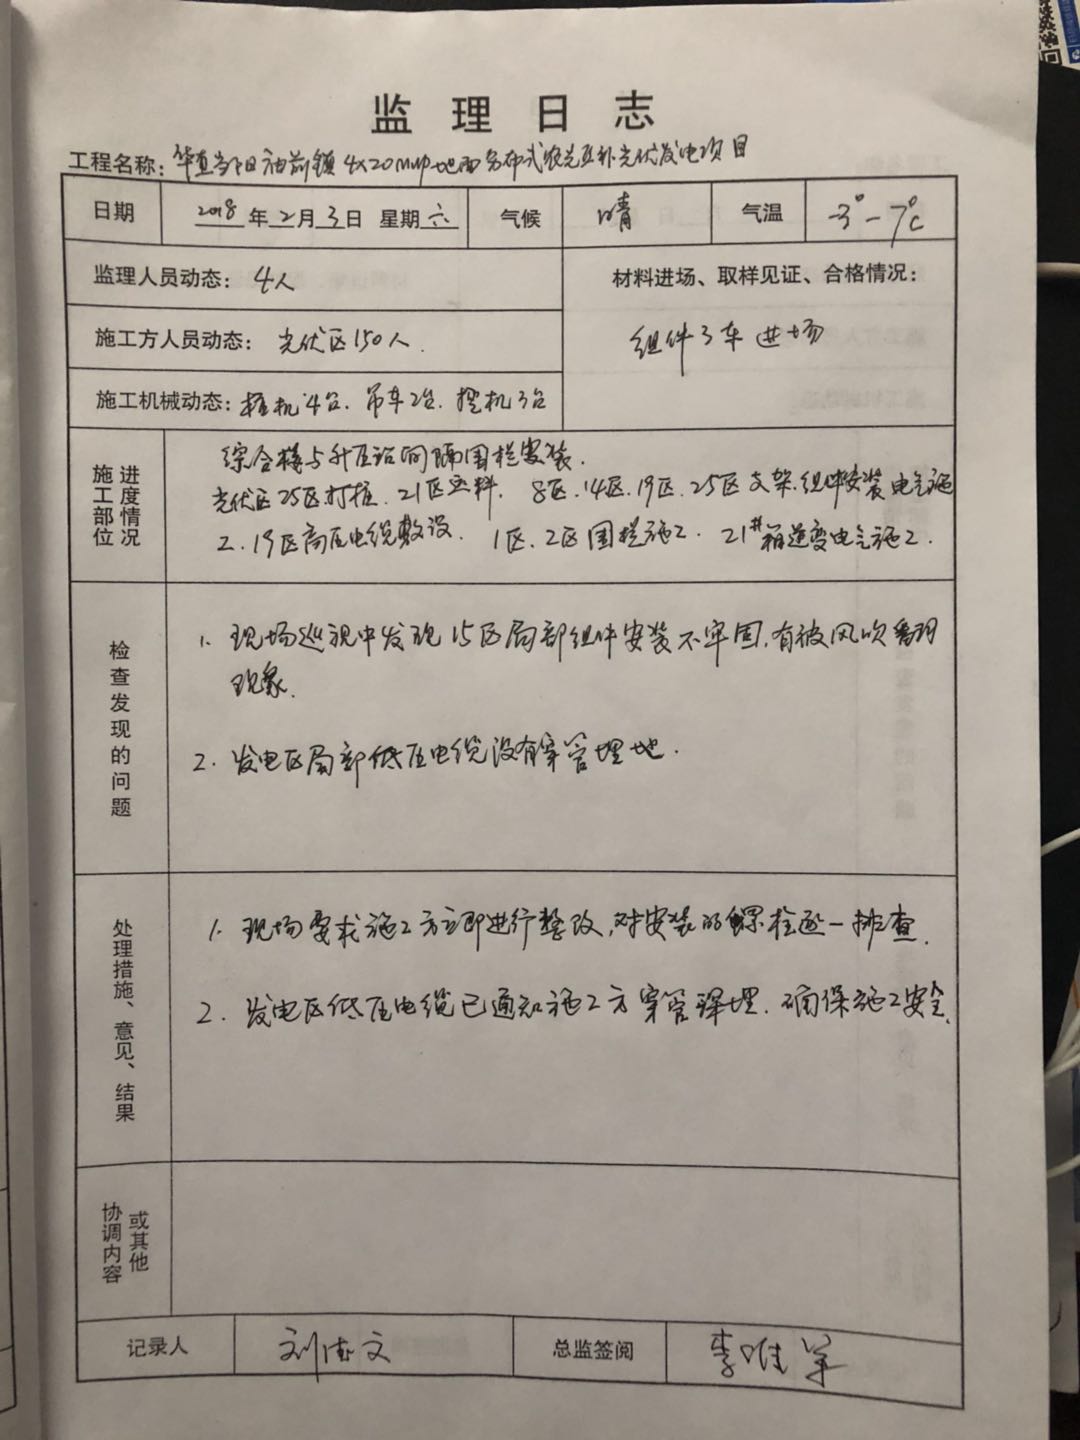 监理日志
工程名称: 4×20MWp地面分布式农光互补光伏发电项目
日期 2018年2月3日 星期六 气候 晴 气温 -3°-7℃
监理人员动态: 4人
材料进场、取样见证、合格情况:
组件3车进场
施工方人员动态: 光伏区150人.
施工机械动态: 桩机4台.吊车2台.挖机3台
施工部位
进度情况
综合楼与升压站间隔围栏安装.
光伏区25区打桩.21区运料. 8区.14区.19区.25区支架.组件安装电气施
工.19区高压电缆敷设. 1区.2区围栏施工. 21#箱逆变电气施工.
检查发现的问题
1. 现场巡视中发现15区局部组件安装不牢固,有被风吹
现象.
2. 发电区局部低压电缆没有穿管埋地.
处理措施、意见、结果
1. 现场要求施工方立即进行整改,对安装的螺栓逐一排查.
2. 发电区低压电缆已通知施工方穿管深埋.确保施工安全.
协调内容
或其他
记录人 刘 文 总监签阅 李唯军